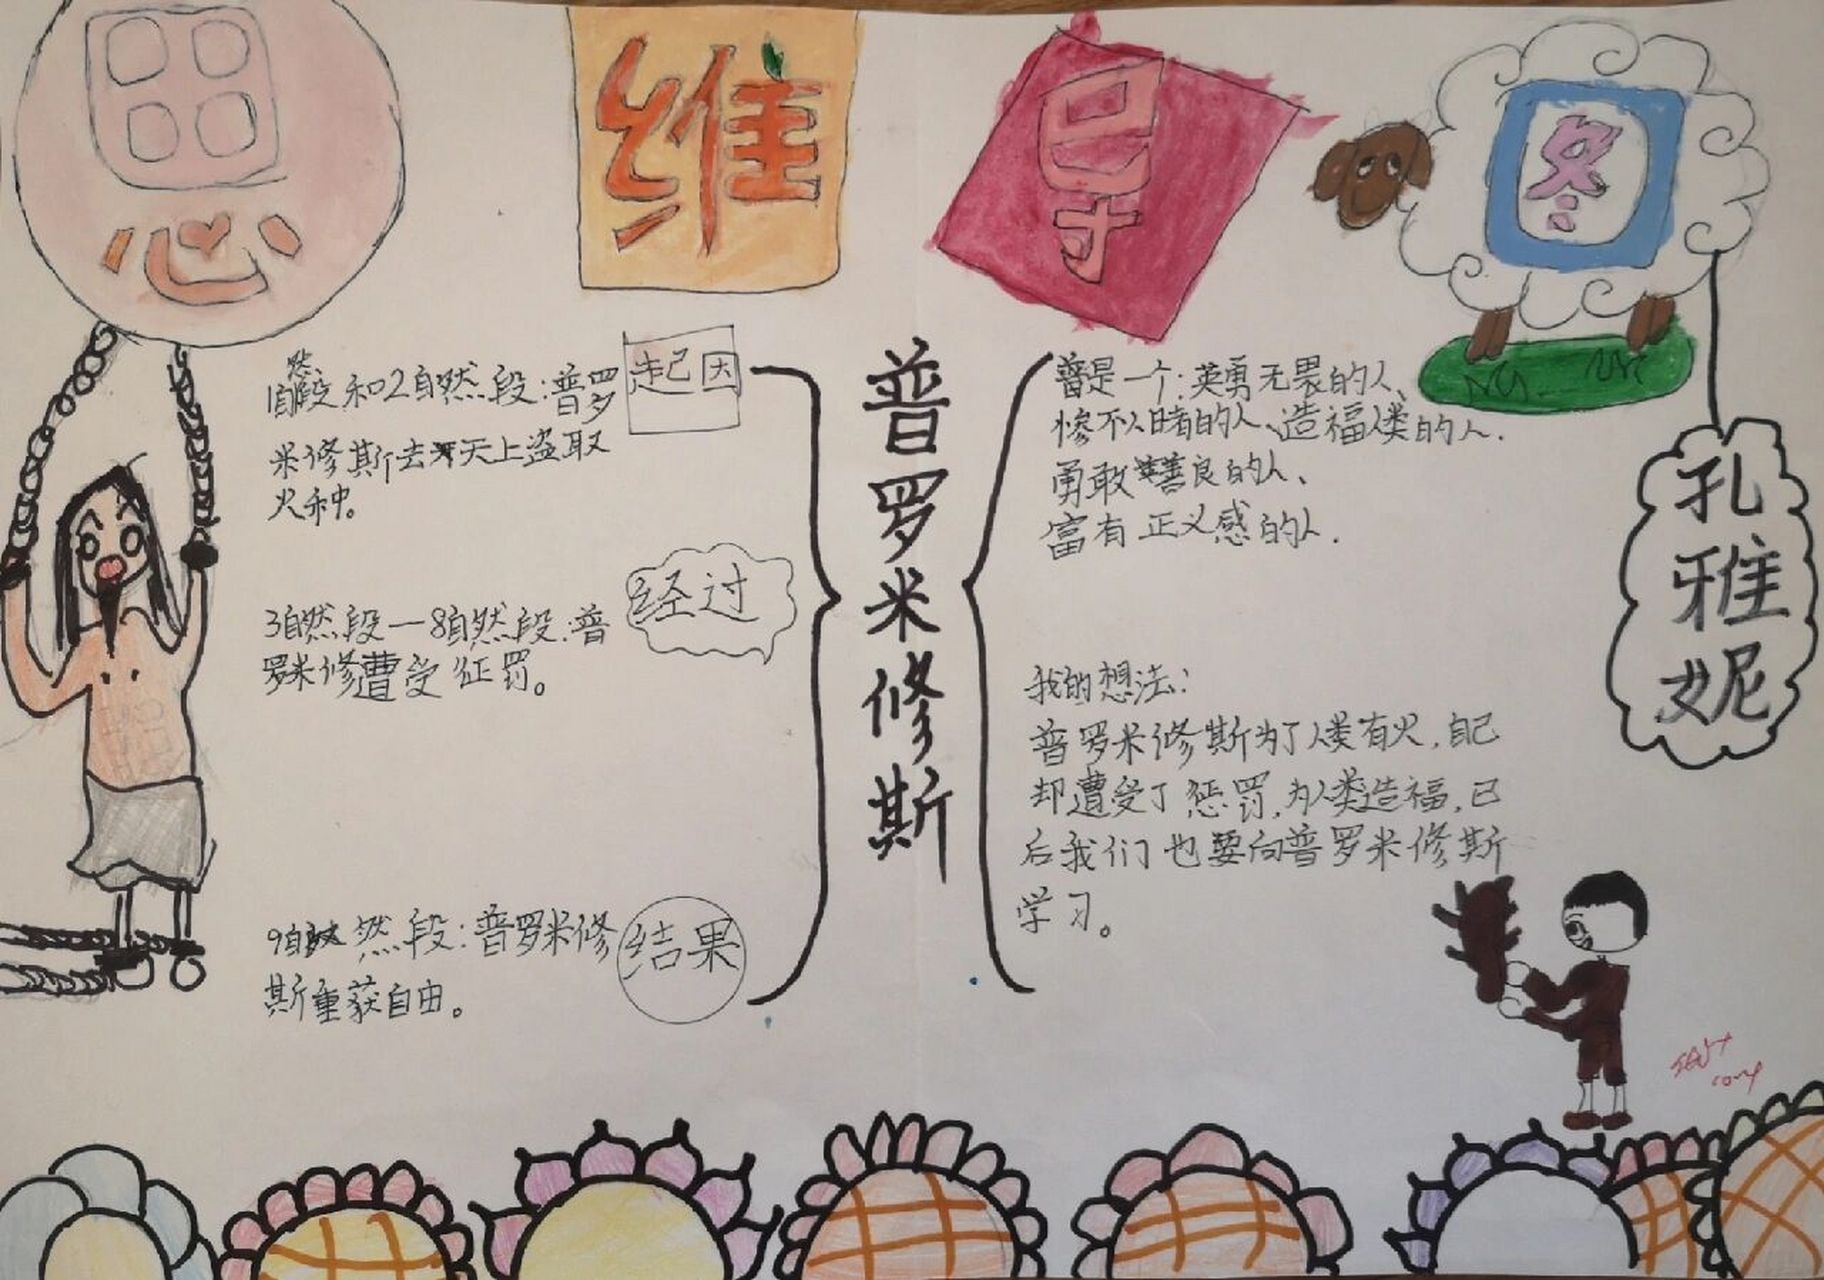 思维导图
孔雅妮
普罗米修斯
起因
1自然段和2自然段:普罗
米修斯去天上盗取
火种。
经过
3自然段一8自然段:普
罗米修遭受征罚。
结果
9自然段:普罗米修
斯重获自由。
普是一个:英勇无畏的人、
惨不人睹的人、造福人类的人.
勇敢善良的人、
富有正义感的人.
我的想法:
普罗米修斯为了人类有火,自己
却遭受了惩罚,为人类造福,已
后我们也要向普罗米修斯
学习。